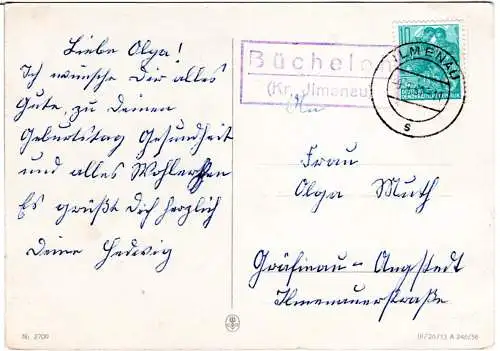 Liebe Olga!
Ich wünsche Dir alles
Gute, zu Deinem
Geburtstag Gesundheit
und alles Wohlergehen
Es grüßt Dich herzlich
Deine Hedwig
Bücheloh
(Kr. Jlmenau)
ILMENAU
An
Frau
Olga Muth
Gräfinau-Angstedt
Ilmenauerstraße
Nr. 2700